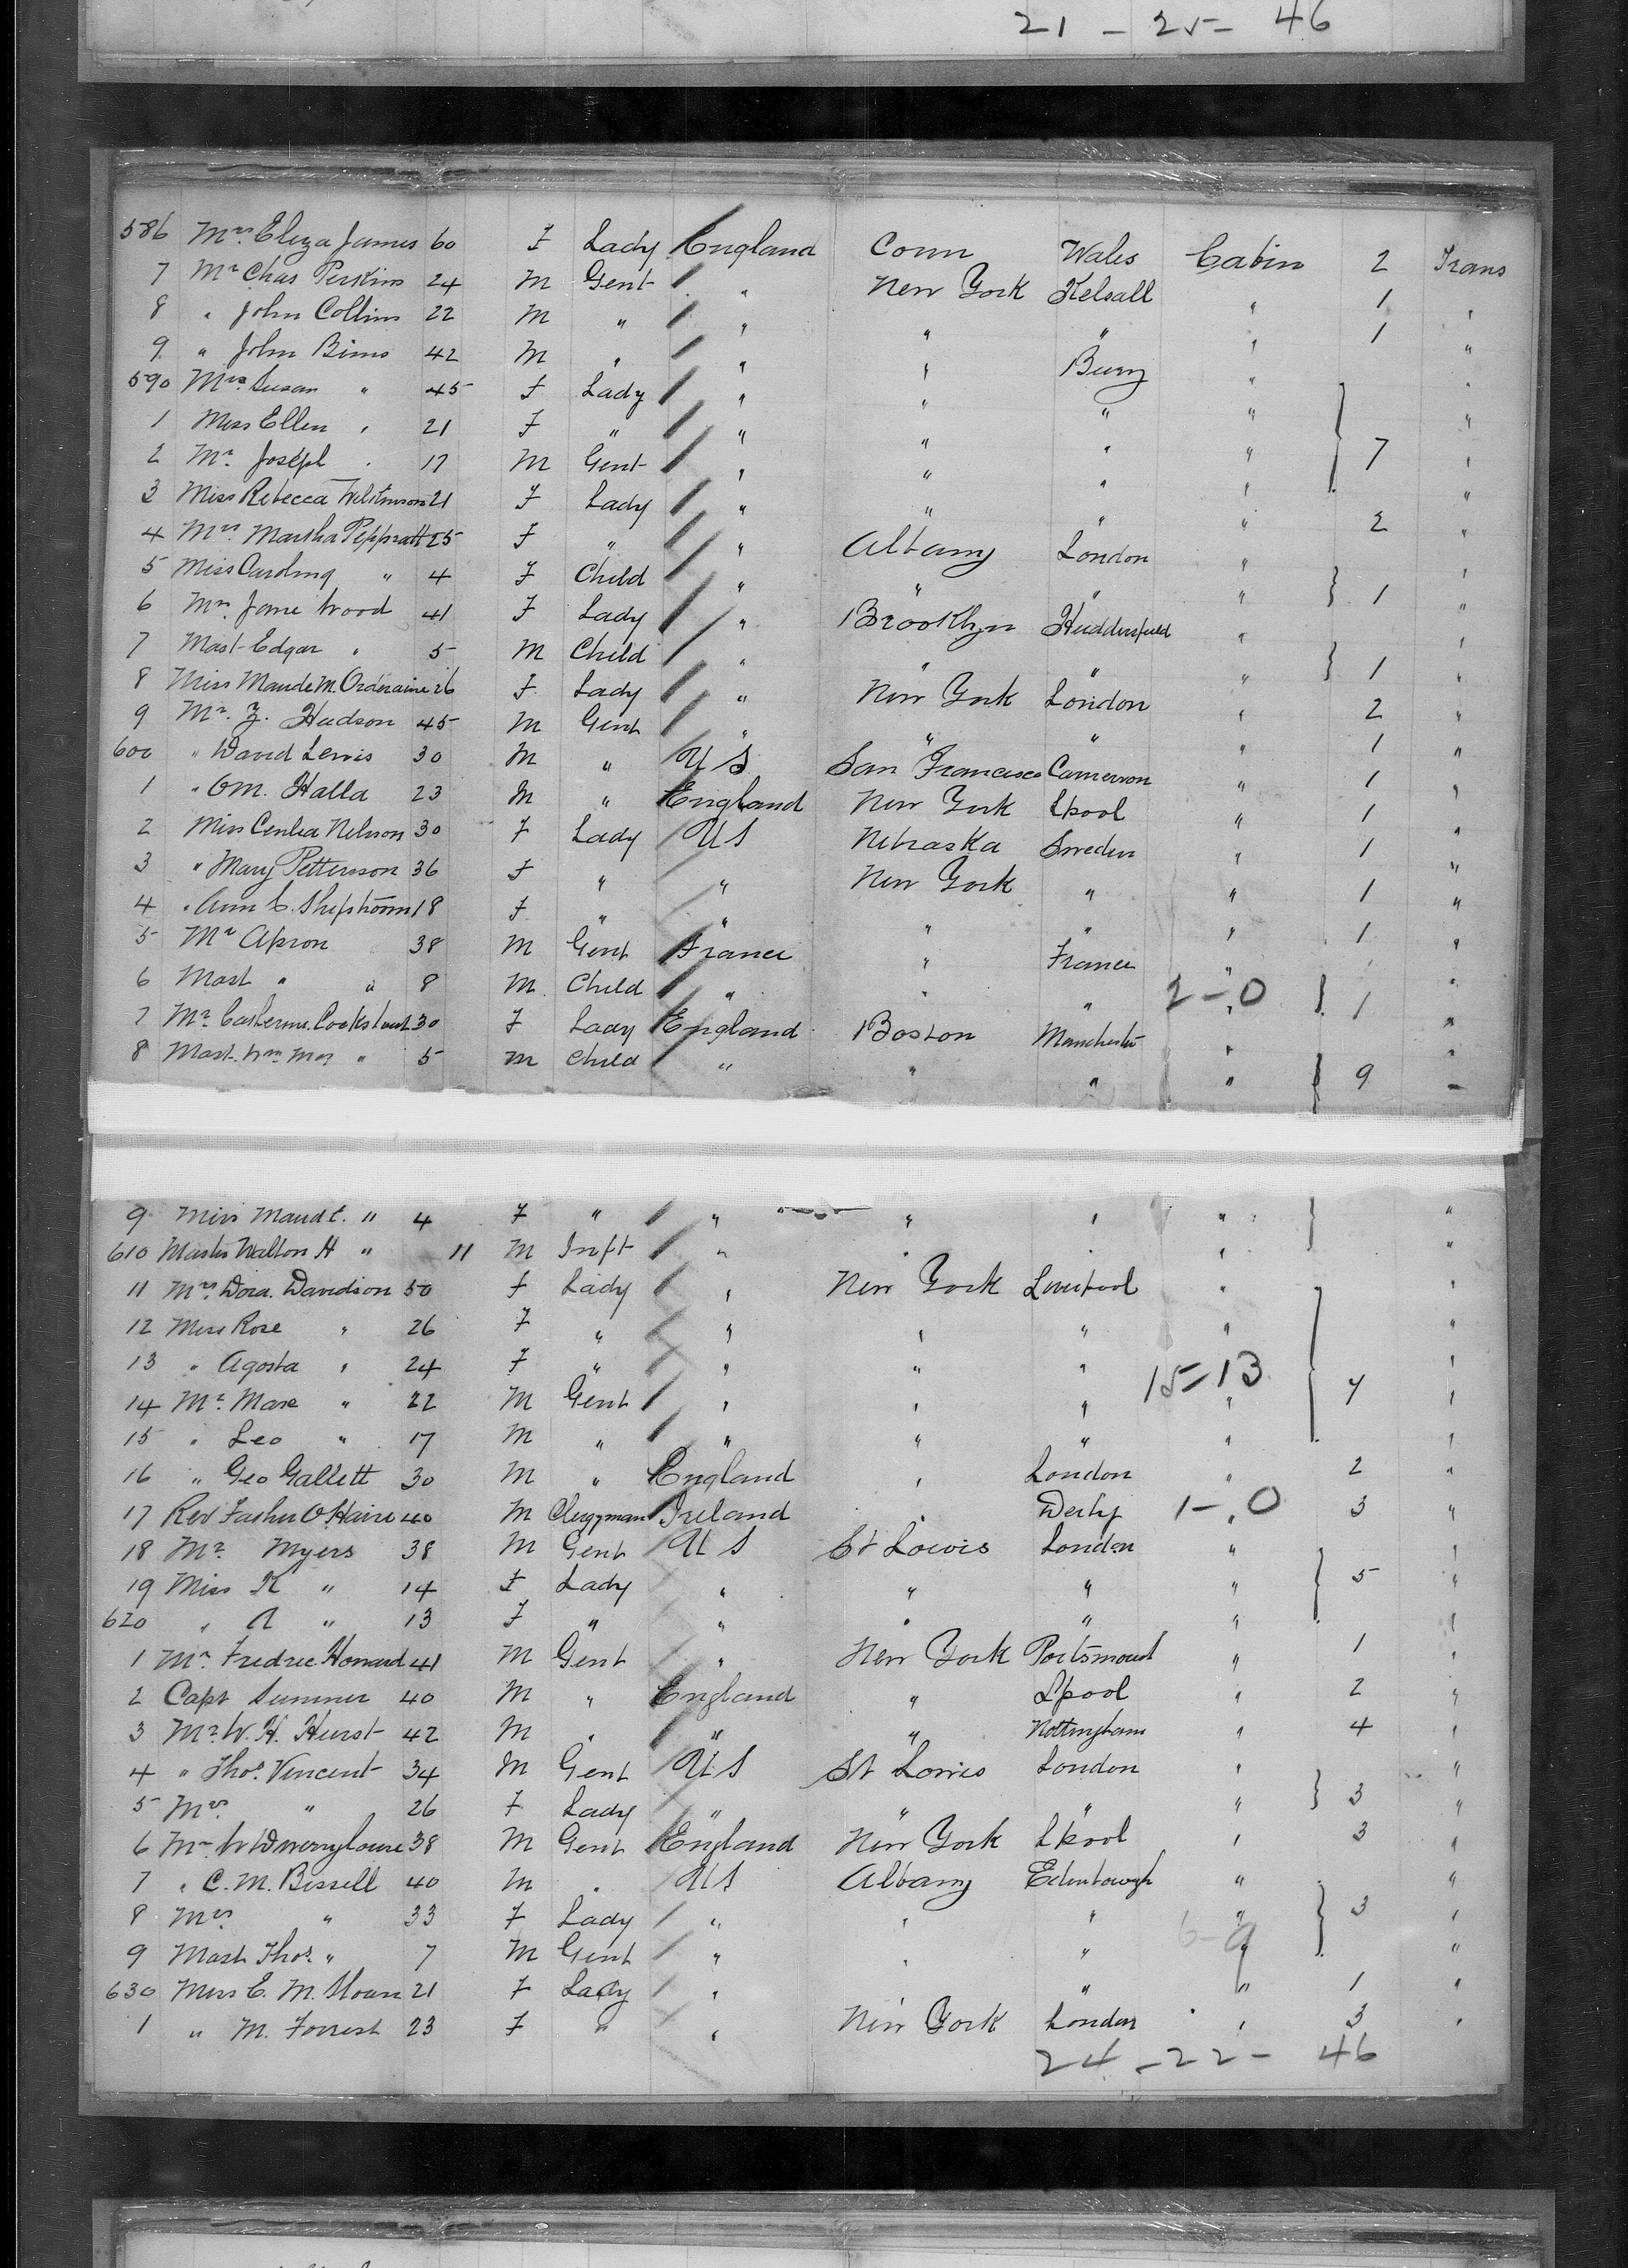 21 - 25 - 46
586 Mrs. Eliza James 60 F Lady England Conn Wales Cabin 2 Trans
7 Mr Chas Perkins 24 M Gent " New York Kelsall " 1 "
8 " John Collins 22 M " " " " " 1 "
9 " John Bims 42 M " " " Bury " "
590 Mrs. Susan " 45 F Lady " " " " "
1 Miss Ellen " 21 F " " " " " 7 "
2 Mr. Joseph " 17 M Gent " " " " "
3 Miss Rebecca Wilkinson 21 F Lady " " " " 2 "
4 Mrs. Martha Peppratt 25 F " " Albany London " "
5 Miss Caroling " 4 F Child " " " " 1 "
6 Mrs. Jane Wood 41 F Lady " Brooklyn Huddersfield " "
7 Mast Edgar " 5 M Child " " " " 1 "
8 Miss Maude M. 26 F Lady " New York London " 2 "
9 Mr. Z. Hudson 45 M Gent " " " " 1 "
600 " David Lewis 30 M " U S San Francisco Camerron " 1 "
1 " Om. Halla 23 M " England New York Lpool " 1 "
2 Miss Nelson 30 F Lady U S Nebraska Sweden " 1 "
3 " Mary Petterson 36 F " " New York " " 1 "
4 " Ann C. 18 F " " " " " 1 "
5 Mr Apron 38 M Gent France " France " "
6 Mast " " 8 M Child " " " 2-0 " 1 "
7 Mrs. Catherine 30 F Lady England Boston Manchester " "
8 Mast. Wm " 5 M Child " " " " 9 "
9 Miss Maud E. " 4 F " " " " " "
610 Master Walton H " 11 M Inft " " " " "
11 Mrs. Dora Davidson 50 F Lady " New York Liverpool " "
12 Miss Rose " 26 F " " " " " "
13 " Agosta " 24 F " " " " 15-13 "
14 Mr. Maxe " 22 M Gent " " " " 7 "
15 " Leo " 17 M " " " " " "
16 " Geo Gallett 30 M " England " London " 2 "
17 Rev Father O'Haire 40 M Clergyman Ireland " Derby 1-0 " 3 "
18 Mr. Myers 38 M Gent U S St Louis London " "
19 Miss K " 14 F Lady " " " " 5 "
620 " A " 13 F " " " " " "
1 Mr. Fredric Howard 41 M Gent " New York Portsmout " 1 "
2 Capt Sumner 40 M " England " Lpool " 2 "
3 Mr. W. H. Hurst 42 M " " " Nottingham " 4 "
4 " Thos. Vincent 34 M Gent U S St Louis London " "
5 Mrs. " 26 F Lady " " " " 3 "
6 Mr. W 38 M Gent England New York Lpool " 3 "
7 " C. M. Bissell 40 M " U S Albany Edinbourgh " "
8 Mrs. " 33 F Lady " " " " 3 "
9 Mast Thos. " 7 M Gent " " " 6-9 " "
630 Miss E. M. Sloan 21 F Lady " " " " 1 "
1 " M. Forrest 23 F " " New York London " 3 "
24 - 22 - 46